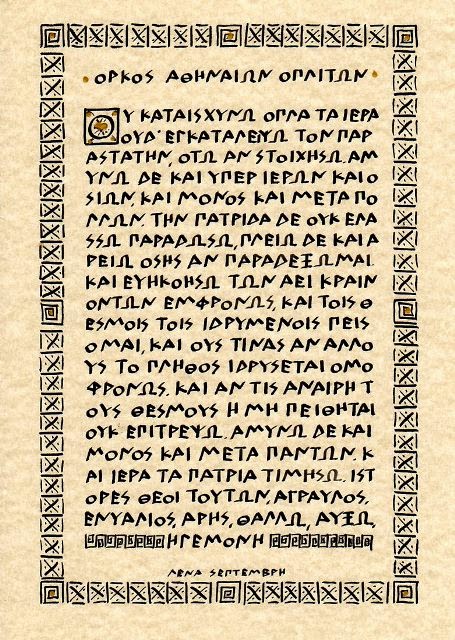 • ΟΡΚΟΣ ΑΘΗΝΑΙΩΝ ΟΠΛΙΤΩΝ •
ΟΥ ΚΑΤΑΙΣΧΥΝΩ ΟΠΛΑ ΤΑ ΙΕΡΑ
ΟΥΔ' ΕΓΚΑΤΑΛΕΙΨΩ ΤΟΝ ΠΑΡ
ΑΣΤΑΤΗΝ, ΟΤΩ ΑΝ ΣΤΟΙΧΗΣΩ. ΑΜ
ΥΝΩ ΔΕ ΚΑΙ ΥΠΕΡ ΙΕΡΩΝ ΚΑΙ Ο
ΣΙΩΝ, ΚΑΙ ΜΟΝΟΣ ΚΑΙ ΜΕΤΑ ΠΟ
ΛΛΩΝ. ΤΗΝ ΠΑΤΡΙΔΑ ΔΕ ΟΥΚ ΕΛΑ
ΣΣΩ ΠΑΡΑΔΩΣΩ, ΠΛΕΙΩ ΔΕ ΚΑΙ Α
ΡΕΙΩ ΟΣΗΣ ΑΝ ΠΑΡΑΔΕΞΩΜΑΙ.
ΚΑΙ ΕΥΗΚΟΗΣΩ ΤΩΝ ΑΕΙ ΚΡΑΙΝ
ΟΝΤΩΝ ΕΜΦΡΟΝΩΣ, ΚΑΙ ΤΟΙΣ Θ
ΕΣΜΟΙΣ ΤΟΙΣ ΙΔΡΥΜΕΝΟΙΣ ΠΕΙΣ
ΟΜΑΙ, ΚΑΙ ΟΥΣ ΤΙΝΑΣ ΑΝ ΑΛΛΟ
ΥΣ ΤΟ ΠΛΗΘΟΣ ΙΔΡΥΣΕΤΑΙ ΟΜΟ
ΦΡΟΝΩΣ. ΚΑΙ ΑΝ ΤΙΣ ΑΝΑΙΡΗ Τ
ΟΥΣ ΘΕΣΜΟΥΣ Η ΜΗ ΠΕΙΘΗΤΑΙ
ΟΥΚ ΕΠΙΤΡΕΨΩ. ΑΜΥΝΩ ΔΕ ΚΑΙ
ΜΟΝΟΣ ΚΑΙ ΜΕΤΑ ΠΑΝΤΩΝ. Κ
ΑΙ ΙΕΡΑ ΤΑ ΠΑΤΡΙΑ ΤΙΜΗΣΩ. ΙΣΤ
ΟΡΕΣ ΘΕΟΙ ΤΟΥΤΩΝ, ΑΓΡΑΥΛΟΣ,
ΕΝΥΑΛΙΟΣ, ΑΡΗΣ, ΘΑΛΛΩ, ΑΥΞΩ,
ΗΓΕΜΟΝΗ
ΛΕΝΑ ΣΕΠΤΕΜΒΡΗ